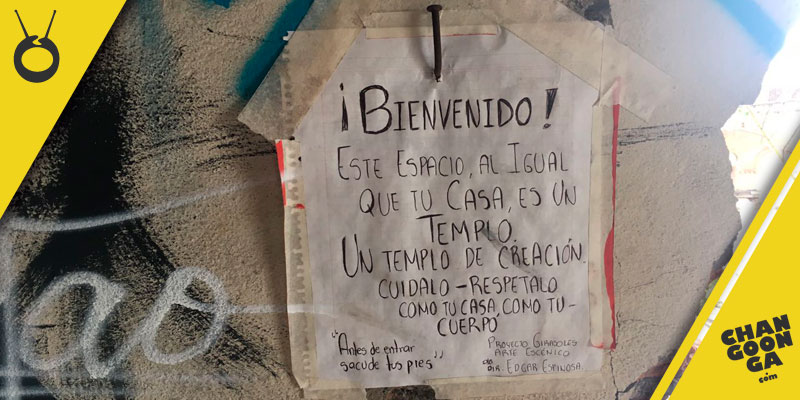 ¡BIENVENIDO!
ESTE ESPACIO, AL IGUAL
QUE TU CASA, ES UN
TEMPLO,
UN TEMPLO DE CREACIÓN.
CUIDALO - RESPETALO
COMO TU CASA, COMO TU-
CUERPO
"Antes de entrar
sacude tus pies"
PROYECTO GIRASOLES
ARTE ESCÉNICO
DIR. EDGAR ESPINOSA
ao
CHAN
GOON
GA
.com